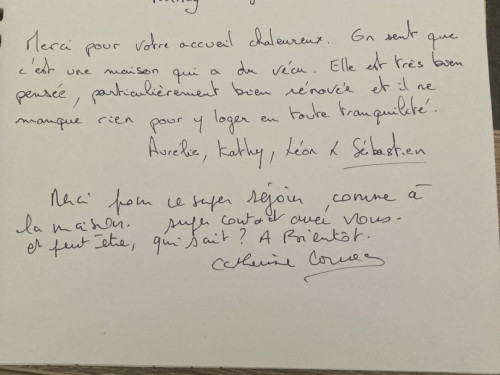 Merci pour votre accueil chaleureux. On sent que
c'est une maison qui a du vécu. Elle est très bien
pensée, particulièrement bien rénovée et il ne
manque rien pour y loger en toute tranquileté.
Aurélie, Kathy, Léon & Sébastien
Merci pour ce super séjour, comme à
la maison. super contact avec vous.
et peut-être, qui sait ? A Bientôt.
Catherine